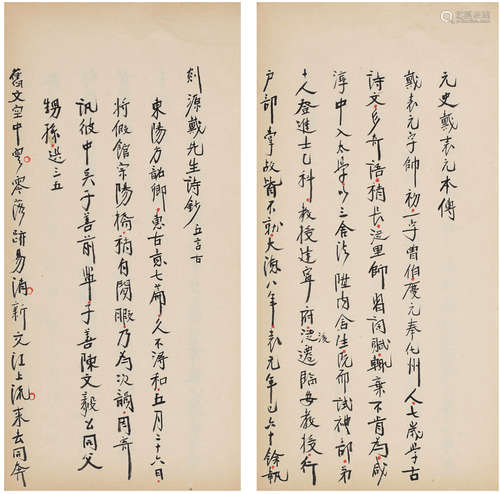 元史戴表元本傳
戴表元字帥初一字曾伯慶元奉化州人七歲學古
詩文多奇語稍長從里師習詞賦輒棄不肯為咸
淳中入太學以三舍法陞內舍生既而試禮部第
十人登進士乙科教授建寧府後遷臨安教授行
戶部掌故皆不就大德八年表元年已六十餘執
剡源戴先生詩鈔 五言古
東陽方韶卿惠古意七篇久不得和五月二十六日
將假館宗陽橋稍有閒暇乃為次韻因寄
訊彼中吳子善前輩子善陳文毅公同父
甥孫 選三五
舊文空中雲零落跡易消新文江上流來去同奔